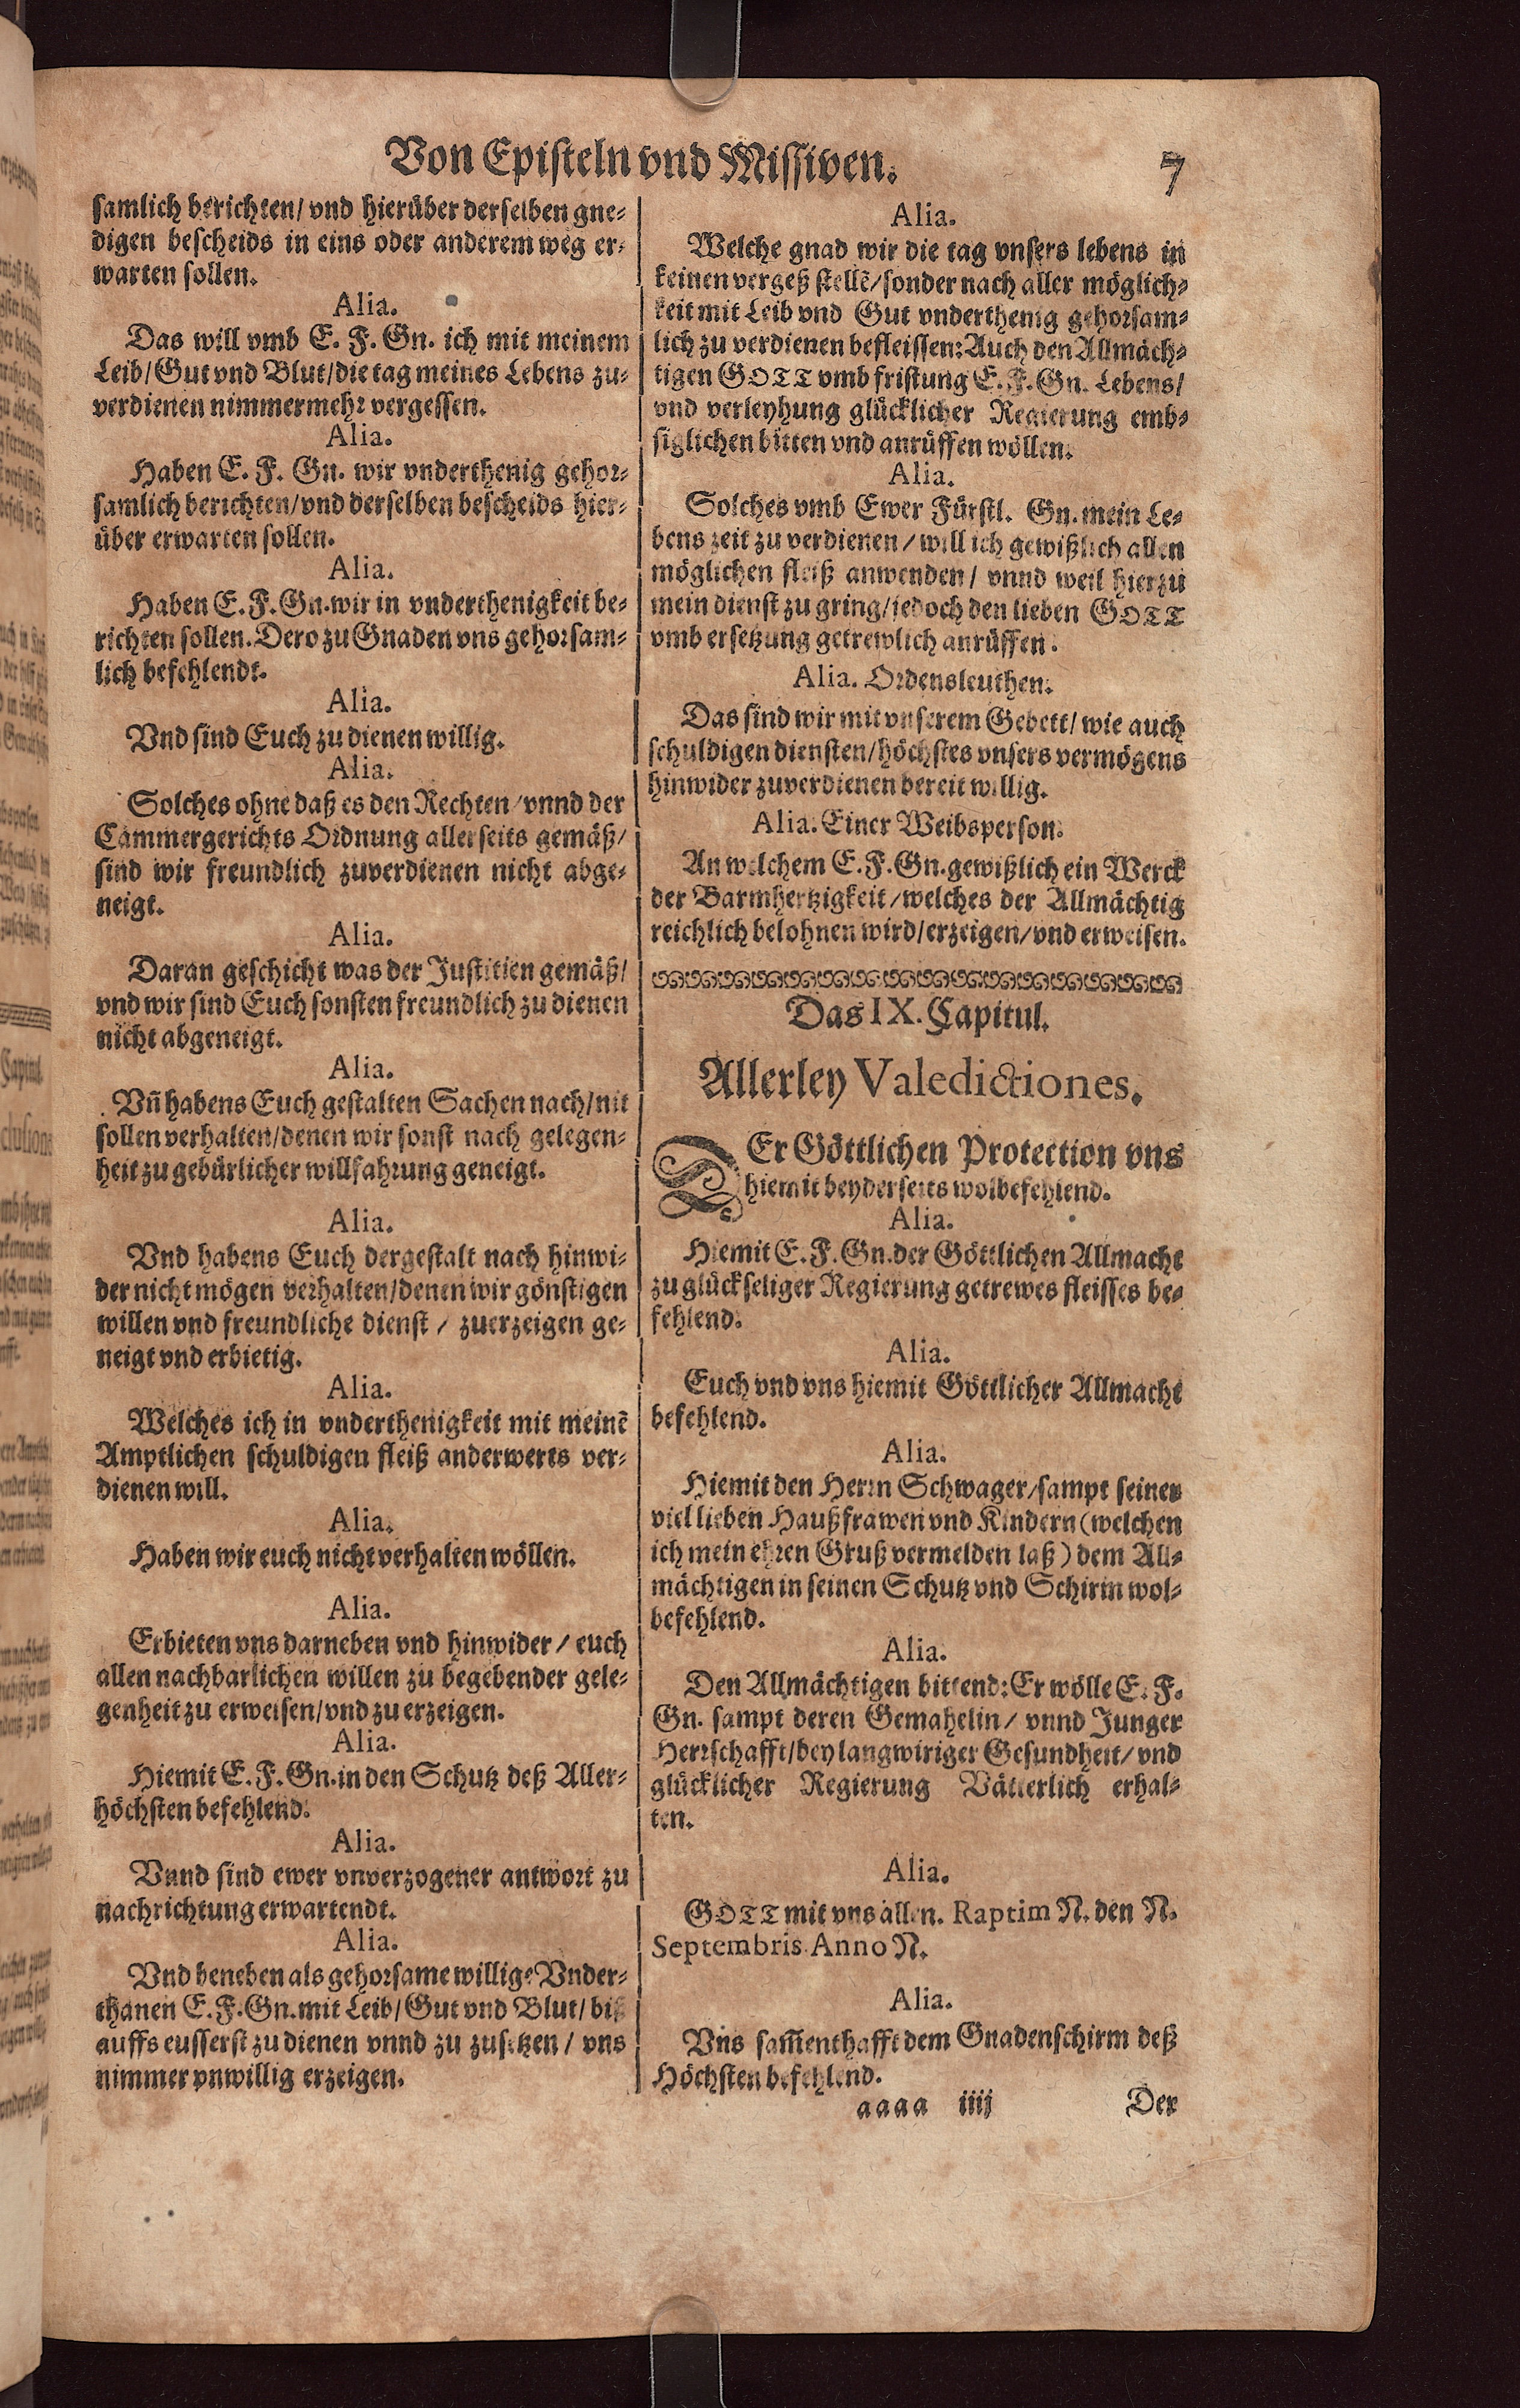 Von Episteln vnd Missiven.
7
samlich berichten/ vnd hierüber derselben gne-
digen bescheids in eins oder anderem weg er-
warten sollen.
Alia.
Das will vmb E. F. Gn. ich mit meinem
Leib/Gut vnd Blut/die tag meines Lebens zu-
verdienen nimmermehr vergessen.
Alia.
Haben E. F. Gn. wir vnderthenig gehor-
samlich berichten/vnd derselben bescheids hier-
über erwarten sollen.
Alia.
Haben E. F. Gn. wir in vnderthenigkeit be-
richten sollen. Dero zu Gnaden vns gehorsam-
lich befehlendt.
Alia.
Vnd sind Euch zu dienen willig.
Alia.
Solches ohne daß es den Rechten/vnnd der
Cammergerichts Ordnung allerseits gemäß/
sind wir freundlich zuverdienen nicht abge-
neigt.
Alia.
Daran geschicht was der Justitien gemäß/
vnd wir sind Euch sonsten freundlich zu dienen
nicht abgeneigt.
Alia.
Vñ habens Euch gestalten Sachen nach/nit
sollen verhalten/denen wir sonst nach gelegen-
heit zu gebürlicher willfahrung geneigt.
Alia.
Vnd habens Euch dergestalt nach hinwi-
der nicht mögen verhalten/denen wir gönstigen
willen vnd freundliche dienst / zuerzeigen ge-
neigt vnd erbietig.
Alia.
Welches ich in vnderthenigkeit mit meinē
Amptlichen schuldigen fleiß anderwerts ver-
dienen will.
Alia.
Haben wir euch nicht verhalten wöllen.
Alia.
Erbieten vns darneben vnd hinwider / euch
allen nachbarlichen willen zu begebender gele-
genheit zu erweisen/vnd zu erzeigen.
Alia.
Hiemit E. F. Gn. in den Schutz deß Aller-
höchsten befehlend.
Alia.
Vnnd sind ewer vnverzogener antwort zu
nachrichtung erwartendt.
Alia.
Vnd beneben als gehorsame willige Vnder-
thanen E. F. Gn. mit Leib/Gut vnd Blut/ biß
auffs eusserst zu dienen vnnd zu zusetzen / vns
nimmer vnwillig erzeigen.
Alia.
Welche gnad wir die tag vnsers lebens in
keinen vergeß stellē/sonder nach aller möglich-
keit mit Leib vnd Gut vnderthenig gehorsam-
lich zu verdienen befleissen: Auch den Allmäch-
tigen GOTT vmb fristung E. F. Gn. Lebens/
vnd verleyhung glücklicher Regierung emb-
siglichen bitten vnd anrüffen wöllen.
Alia.
Solches vmb Ewer Fürstl. Gn. mein Le-
bens zeit zu verdienen / will ich gewißlich allen
möglichen fleiß anwenden / vnnd weil hierzu
mein dienst zu gring/jedoch den lieben GOTT
vmb ersetzung getrewlich anrüffen.
Alia. Ordensleuthen.
Das sind wir mit vnserem Gebett/ wie auch
schuldigen diensten/höchstes vnsers vermögens
hinwider zuverdienen bereit willig.
Alia. Einer Weibsperson.
An welchem E. F. Gn. gewißlich ein Werck
der Barmhertzigkeit/welches der Allmächtig
reichlich belohnen wird/erzeigen/vnd erweisen.
Das IX. Capitul.
Allerley Valedictiones.
DEr Göttlichen Protection vns
hiemit beyderseits wolbefehlend.
Alia.
Hiemit E. F. Gn. der Göttlichen Allmacht
zu glückseliger Regierung getrewes fleisses be-
fehlend.
Alia.
Euch vnd vns hiemit Göttlicher Allmacht
befehlend.
Alia.
Hiemit den Herrn Schwager/sampt seiner
viel lieben Haußfrawen vnd Kindern (welchen
ich mein ehren Gruß vermelden laß) dem All-
mächtigen in seinen Schutz vnd Schirm wol-
befehlend.
Alia.
Den Allmächtigen bittend: Er wölle E. F.
Gn. sampt deren Gemahelin/ vnnd Junger
Herrschafft/bey langwiriger Gesundheit/ vnd
glücklicher Regierung Vätterlich erhal-
ten.
Alia.
GOTT mit vns allen. Raptim N. den N.
Septembris Anno N.
Alia.
Vns sam̄enthafft dem Gnadenschirm deß
Höchsten befehlend.
aaaa iiij
Der